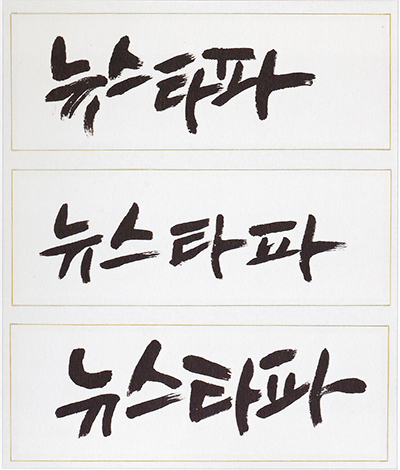 뉴스타파
뉴스타파
뉴스타파